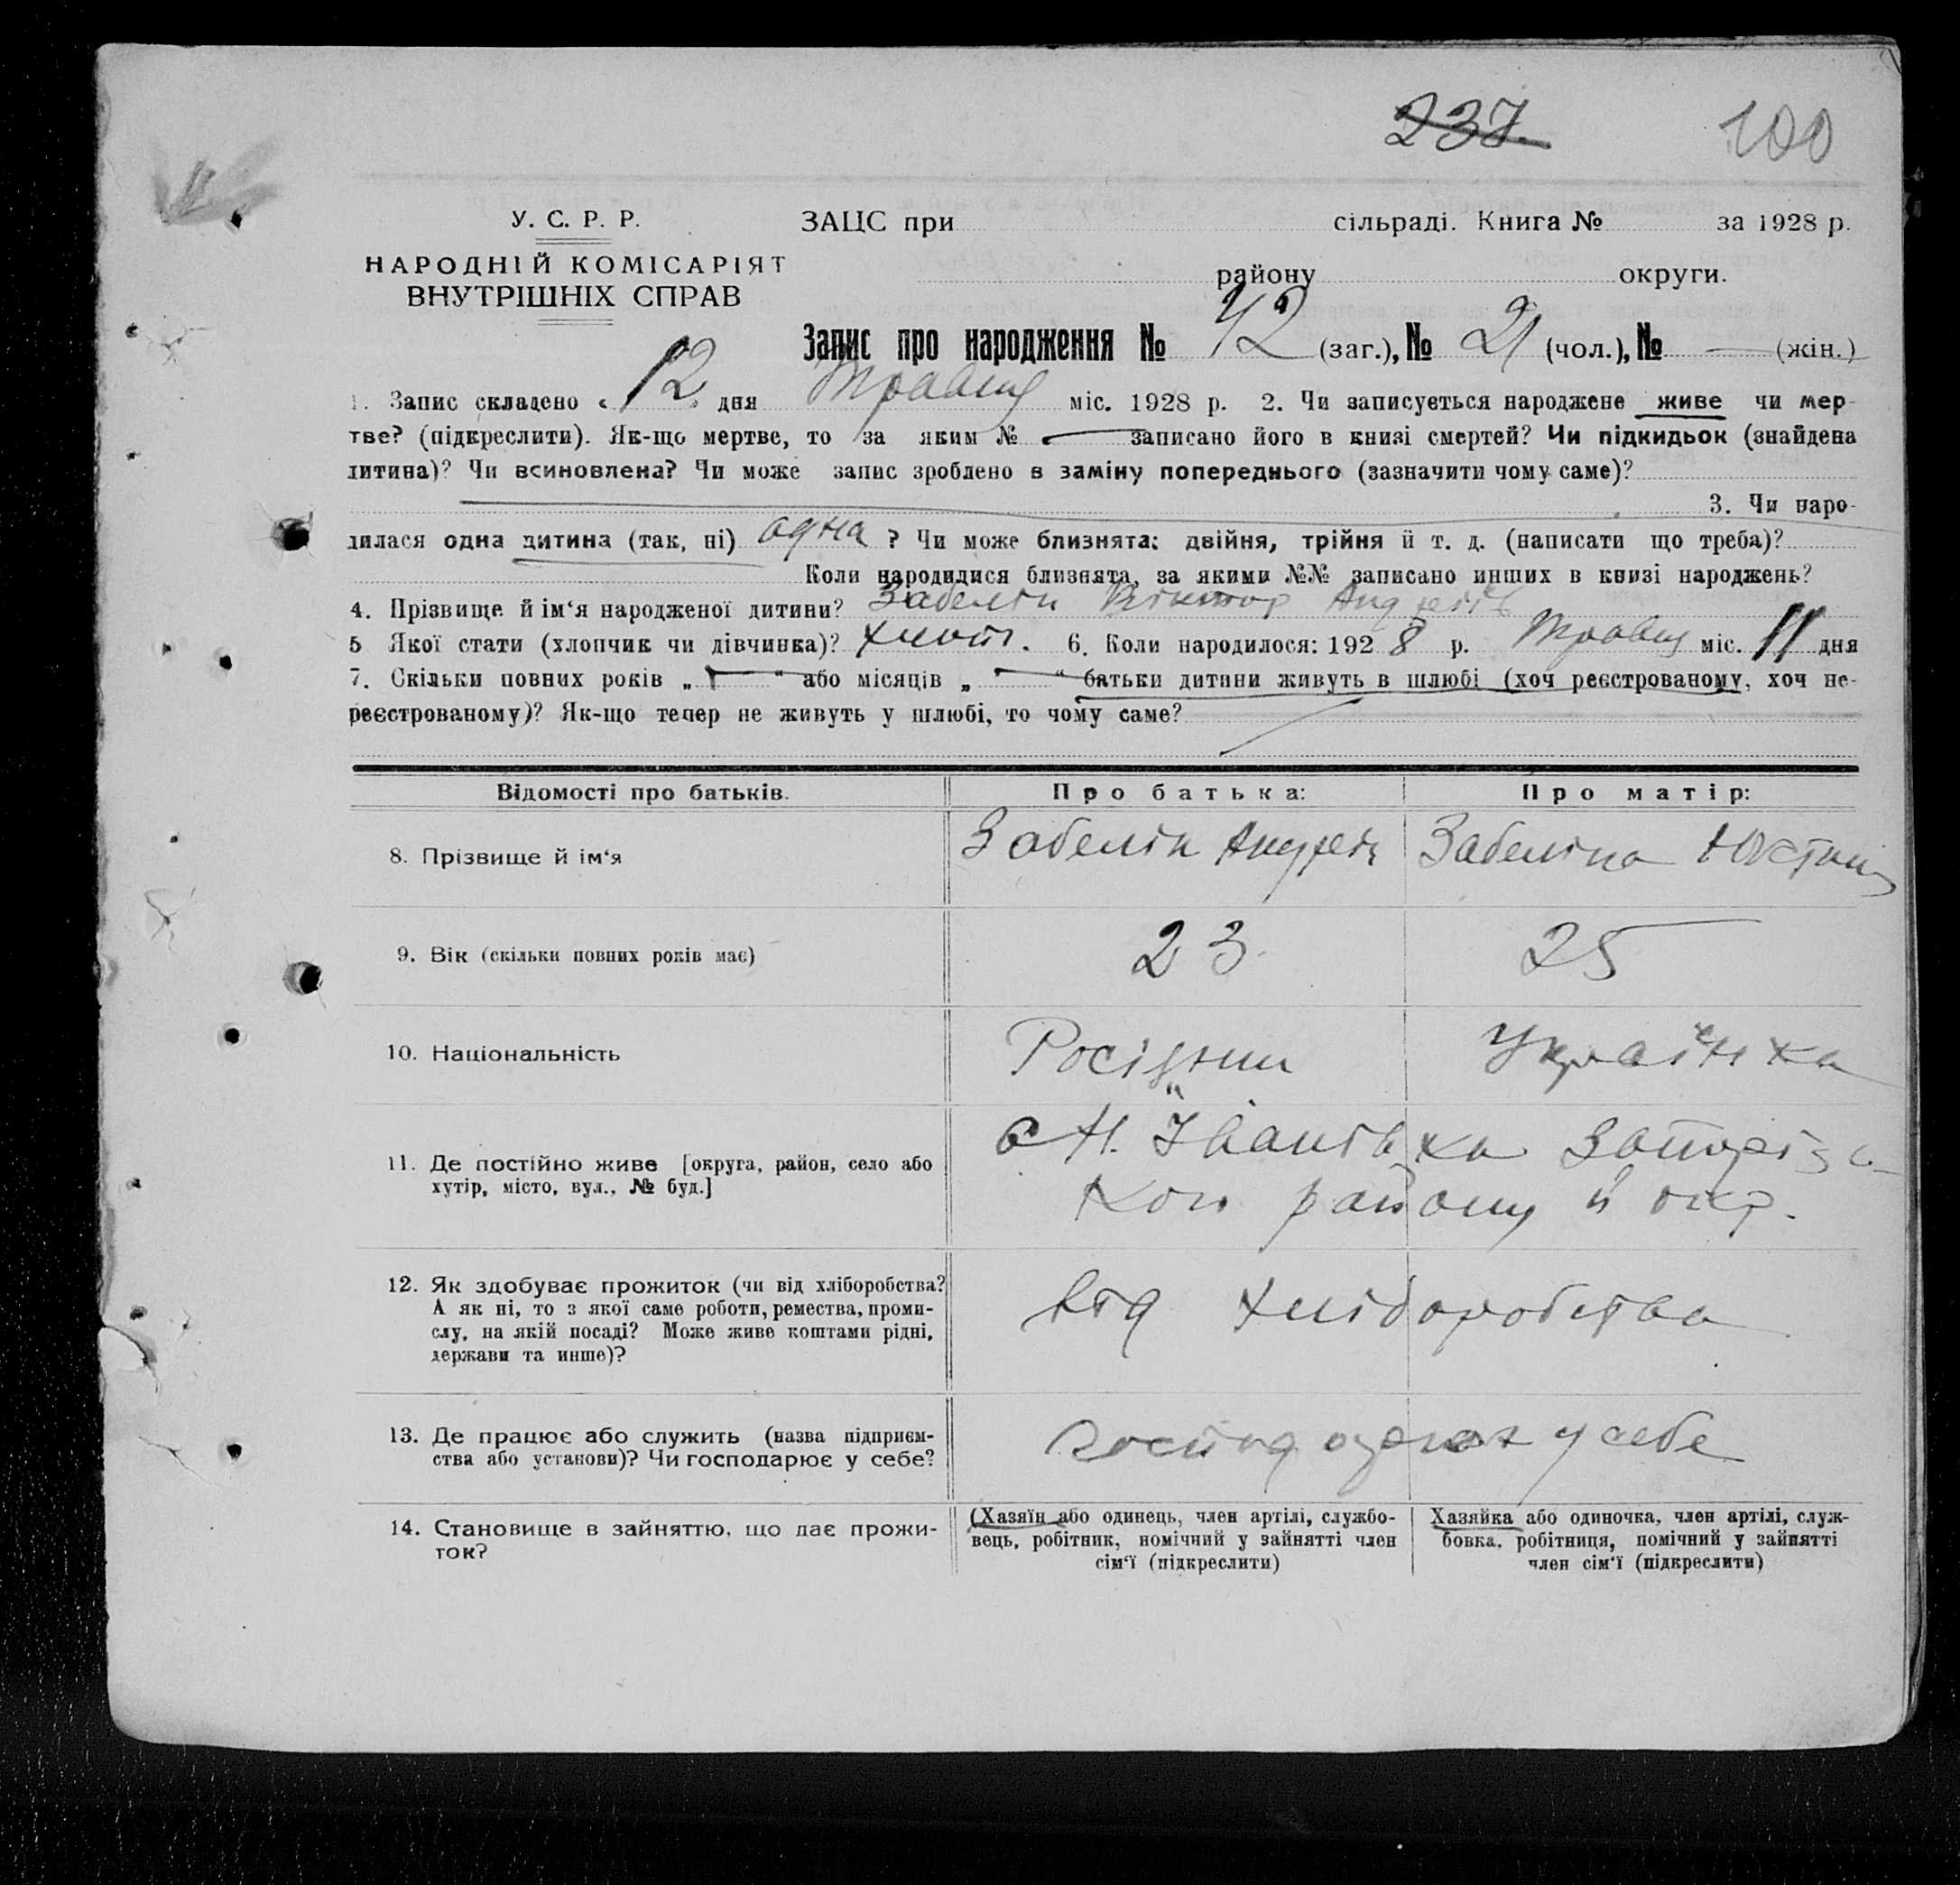 237.
100
У. С. Р. Р.
НАРОДНІЙ КОМІСАРІЯТ
ВНУТРІШНІХ СПРАВ
ЗАЦС при сільраді. Книга № за 1928 р.
району округи.
Запис про народження № 42 (заг.), № 21 (чол.), № — (жін.)
1. Запис складено « 12 » дня Травня міс. 1928 р. 2. Чи записується народжене живе чи мер-
тве? (підкреслити). Як-що мертве, то за яким № — записано його в книзі смертей? Чи підкидьок (знайдена
дитина)? Чи всиновлена? Чи може запис зроблено в заміну попереднього (зазначити чому саме)?
3. Чи наро-
дилася одна дитина (так, ні) одна ? Чи може близнята: двійня, трійня й т. д. (написати що треба)?
Коли народидися близнята, за якими №№ записано инших в книзі народжень?
4. Прізвище й ім‘я народженої дитини? Забелін Віктор Андреів
5 Якої стати (хлопчик чи дівчинка)? хлоп. 6. Коли народилося: 1928 р. Травня міс. 11 дня
7. Скільки повних років „ — “ або місяців „ — “ батьки дитини живуть в шлюбі (хоч реєстрованому, хоч не-
реєстрованому)? Як-що тепер не живуть у шлюбі, то чому саме?
Відомості про батьків. Про батька: Про матір:
8. Прізвище й ім‘я Забелін Андрей Забеліна Юстина
9. Вік (скільки повних років має) 23. 25
10. Національність Росіянин Українка
11. Де постійно живе [округа, район, село або
хутір, місто, вул., № буд.]
с Н. Іванівка Запоріз-
кого району й окр.
12. Як здобуває прожиток (чи від хліборобства?
А як ні, то з якої саме роботи, ремества, проми-
слу, на якій посаді? Може живе коштами рідні,
держави та инше)?
від хліборобства
13. Де працює або служить (назва підприєм-
ства або установи)? Чи господарює у себе?
у себе
14. Становище в зайняттю, що дає прожи-
ток?
(Хазяїн або одинець, член артілі, службо-
вець, робітник, помічний у зайнятті член
сім‘ї (підкреслити)
Хазяйка або одиночка, член артілі, служ-
бовка, робітниця, помічний у зайнятті
член сім‘ї (підкреслити)